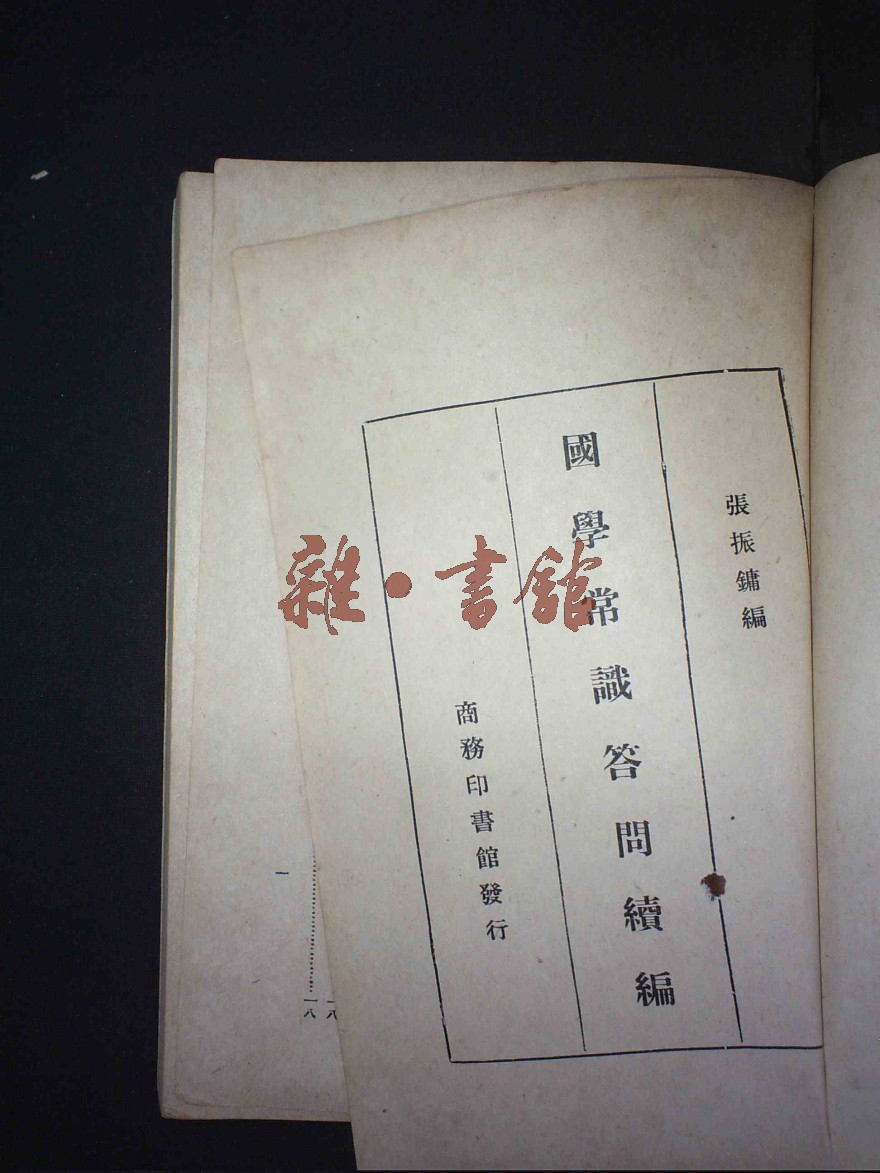 張振鏞編
國學常識答問續編
商務印書館發行
一八
一八
一
雜·書館